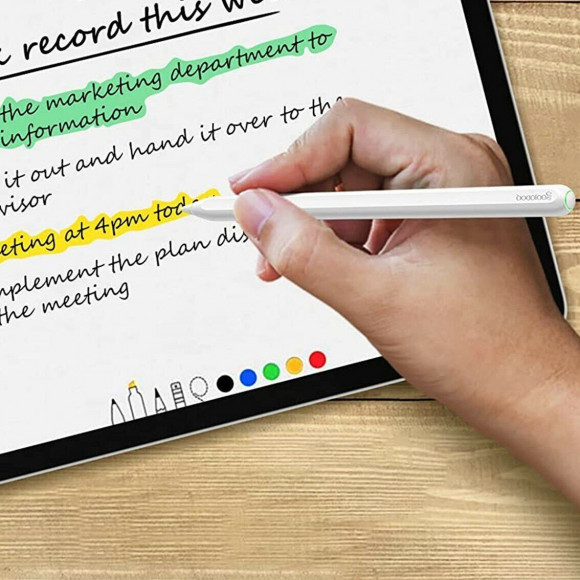 record this we
the marketing department to
information
it out and hand it over to the
visor
eting at 4pm tod
mplement the plan dis
the meeting
goojodoq